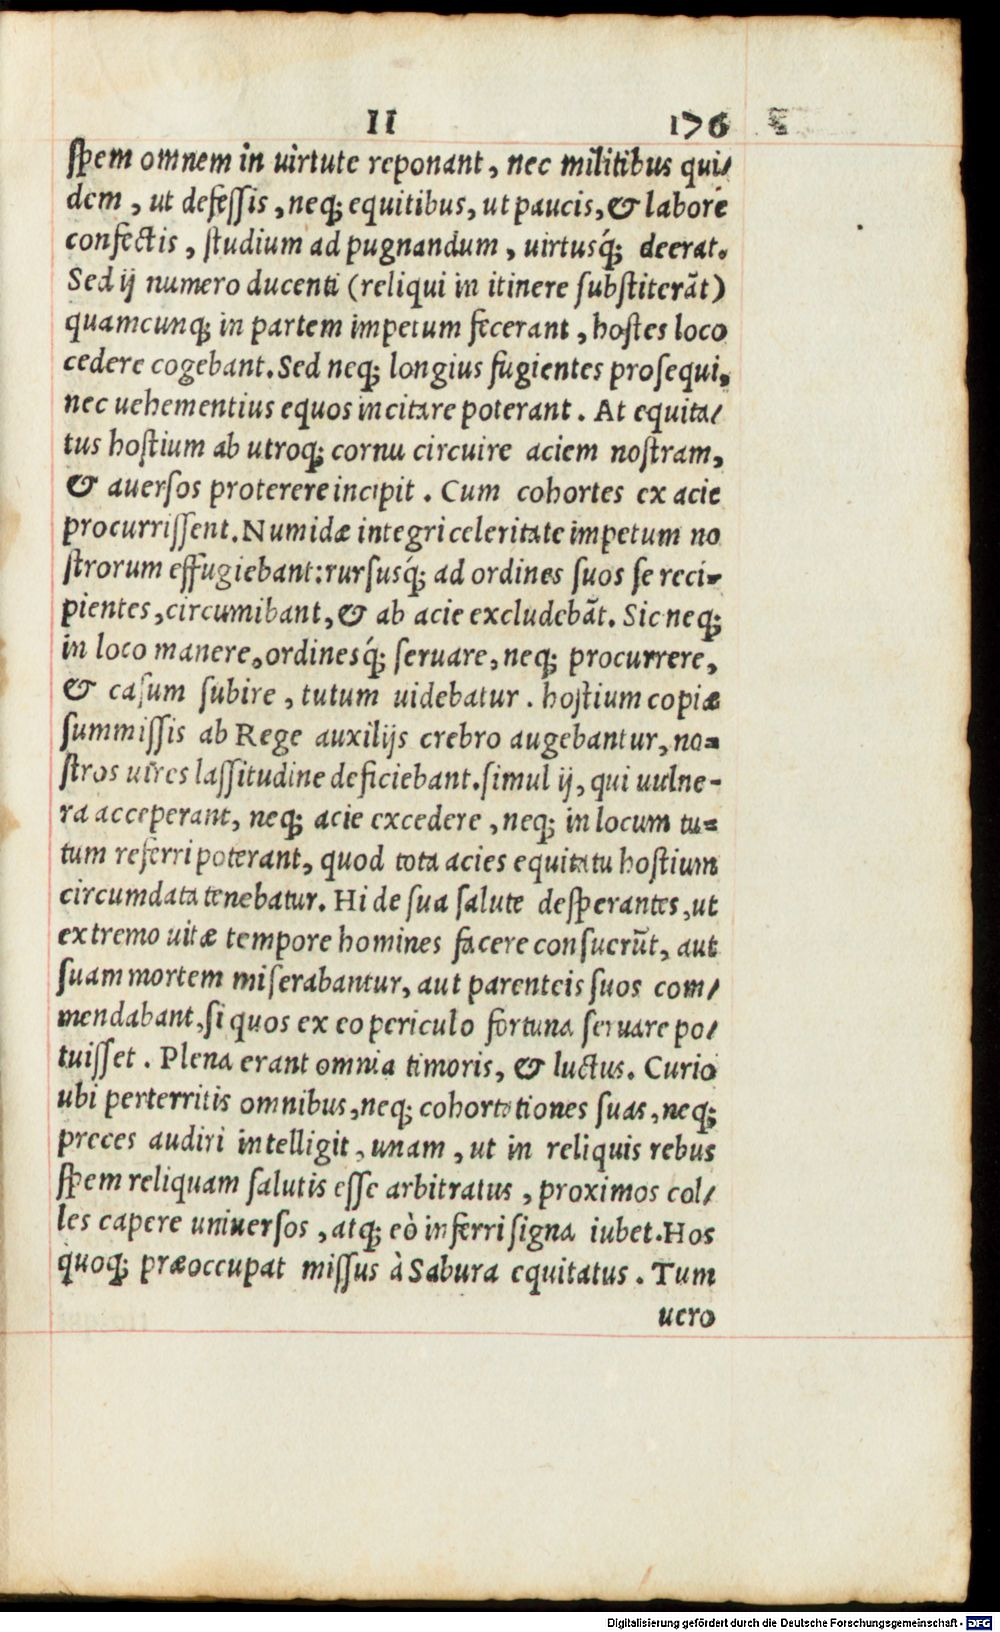 II 176
ſpem omnem in uirtute reponant, nec militibus qui/
dem, ut defeſſis, neq; equitibus, ut paucis, & labore
confectis, ſtudium ad pugnandum, uirtusq́; deerat.
Sed ij numero ducenti (reliqui in itinere ſubſtiterāt)
quamcunq; in partem impetum fecerant, hoſtes loco
cedere cogebant. Sed neq; longius fugientes proſequi,
nec uehementius equos incitare poterant. At equita/
tus hoſtium ab utroq; cornu circuire aciem noſtram,
& auerſos proterere incipit. Cum cohortes ex acie
procurriſſent. Numidæ integri celeritate impetum no
ſtrorum effugiebant: rurſusq́; ad ordines ſuos ſe reci-
pientes, circumibant, & ab acie excludebāt. Sic neq;
in loco manere, ordinesq́; ſeruare, neq; procurrere,
& caſum ſubire, tutum uidebatur. hoſtium copiæ
ſummiſſis ab Rege auxilijs crebro augebantur, no=
ſtros uires laſſitudine deficiebant. ſimul ij, qui uulne-
ra acceperant, neq; acie excedere, neq; in locum tu=
tum referri poterant, quod tota acies equitatu hoſtium
circumdata tenebatur. Hi de ſua ſalute deſperantes, ut
extremo uitæ tempore homines facere conſuerūt, aut
ſuam mortem miſerabantur, aut parenteis ſuos com/
mendabant, ſi quos ex eo periculo fortuna ſeruare po/
tuiſſet. Plena erant omnia timoris, & luctus. Curio
ubi perterritis omnibus, neq; cohortationes ſuas, neq;
preces audiri intelligit, unam, ut in reliquis rebus
ſpem reliquam ſalutis eſſe arbitratus, proximos col/
les capere uniuerſos, atq; eò inferri ſigna iubet. Hos
quoq; præoccupat miſſus à Sabura equitatus. Tum
uero
Digitalisierung gefördert durch die Deutsche Forschungsgemeinschaft - DFG